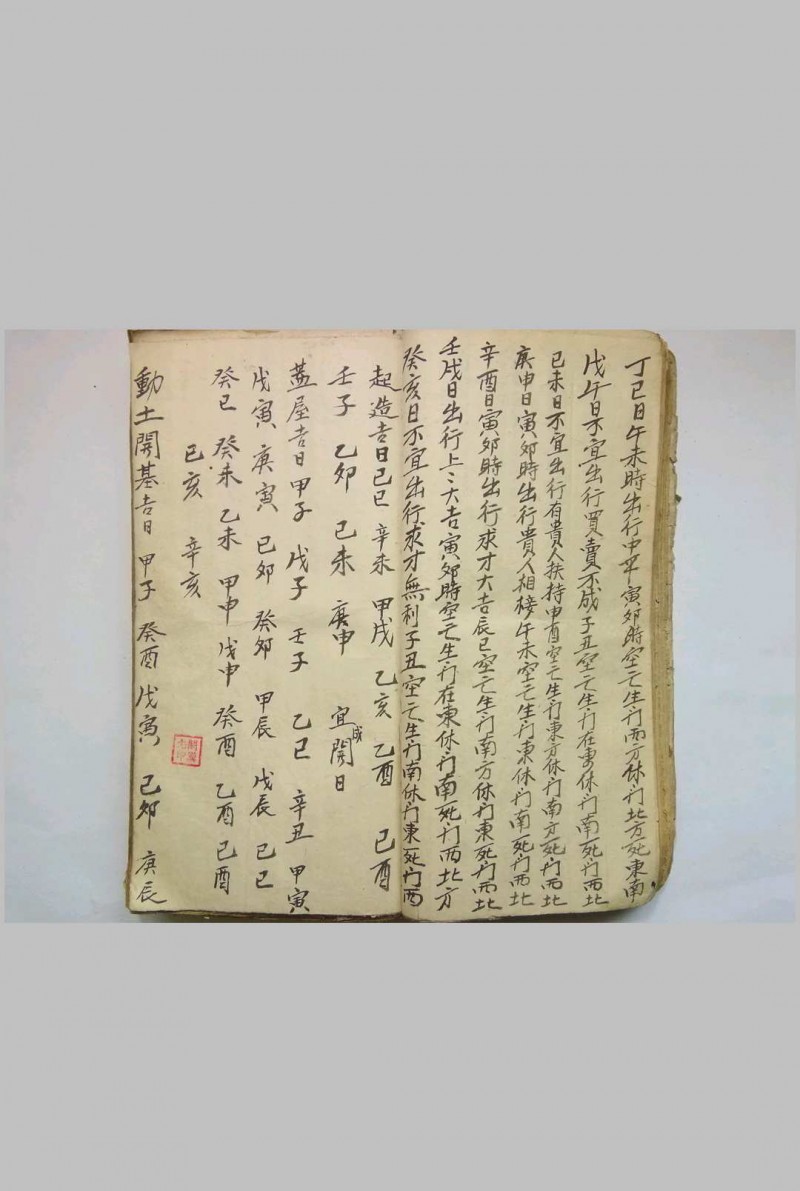 丁巳日午未時出行中平寅卯時空亡生门西方休门北方死東南
戊午日不宜出行買賣不成子丑空亡生门在東休门南死门西北
己未日不宜出行有貴人扶持申酉空亡生门東方休门南方死门西北
庚申日寅卯時出行貴人相接午未空亡生门東休门南死门西北
辛酉日寅卯時出行求才大吉辰巳空亡生门南方休门東死门西北
壬戌日出行上二大吉寅卯時空亡生门在東休门南死门西北方
癸亥日不宜出行求才無利子丑空亡生门南休门東死门西
起造吉日己巳 辛未 甲戌 乙亥 乙酉 己酉
壬子 乙卯 己未 庚申 宜成開日
蓋屋吉日 甲子 戊子 壬子 乙巳 辛丑 甲寅
戊寅 庚寅 己卯 癸卯 甲辰 戊辰 己巳
癸巳 癸未 乙未 甲申 戊申 癸酉 乙酉 己酉
己亥 辛亥
動土開基吉日 甲子 癸酉 戊寅 己卯 庚辰